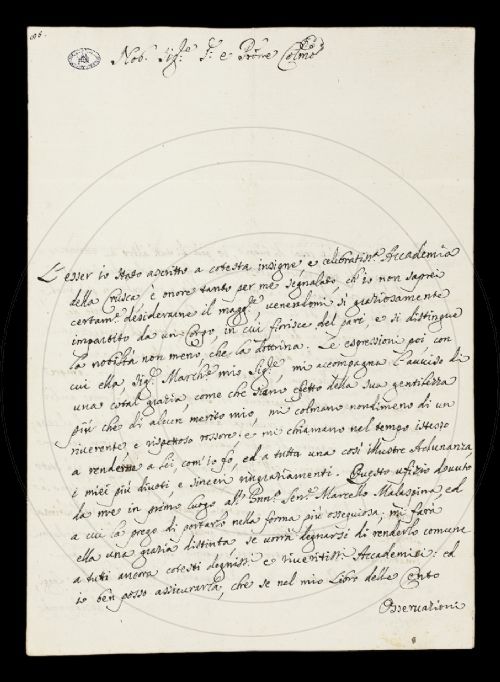 Nob. Sig.r P. e Prone Colmo
L'esser io stato ascritto a cotesta insigne, e celebratiss.a Accademia
della Crusca, è onore tanto per me segnalato, ch'io non saprei
certam.e desiderarne il magg.e, venendomi sì graziosamente
impartito da un Corpo, in cui fiorisce del pari, e si distingue
la nobiltà non meno che la dottrina. Le espressioni poi con
cui ella Sig.r March.e mio Sig.re mi accompagna l'avviso di
una cotal grazia, come che siano effetto della sua gentilezza
più che di alcun merito mio, mi colmano nondimeno di un
riverente e rispettoso rossore e mi chiamano nel tempo istesso
a rendere a Lei, com'io fo, ed a tutta una così illustre Adunanza,
i miei più divoti, e sinceri ringraziamenti. Questo ufizio dovuto
da me in primo luogo all' Sen.e Marcello Malaspina, ed
a cui la prego di portarlo nella forma più ossequiosa, mi farà
ella una grazia distinta se vorrà degnarsi di renderlo comune
a tutti ancora cotesti degniss.i e riveritiss.i Accademici: ed
io ben posso assicurarla, che se nel mio Libro delle Cento
Osservazioni